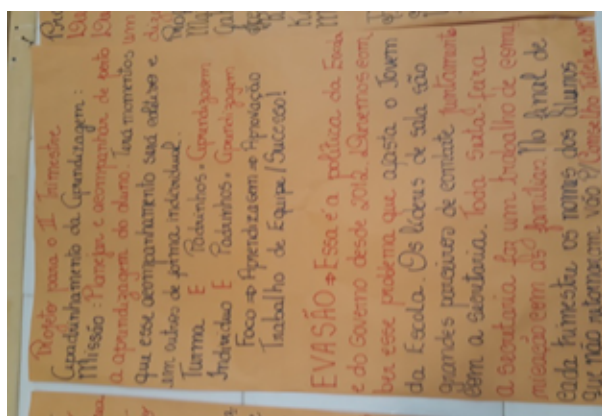 Projeto para o I Trimestre
Apadrinhamento da Aprendizagem:
Missão: Planejar e acompanhar de perto
a aprendizagem do aluno. Terá momentos
que esse acompanhamento será coletivo e
em outros de forma individual.
Turma E Padrinhos = Aprendizagem
Indivíduo E Padrinhos = Aprendizagem
Foco ⇒ Aprendizagem ⇒ Aprovação
Trabalho de Equipe / Sucesso!
EVASÃO ⇒ Essa é a política da Escola
e do Governo desde 2012. Queremos com
bater esse problema que afasta o Jovem
da Escola. Os líderes de sala são
grandes parceiros de combate juntamente
com a secretaria. Toda sexta-feira
a secretaria faz um trabalho de comu
nicação com as famílias. No final de
cada trimestre os nomes dos alunos
que não retornaram vão p/ Conselho Tutelar e